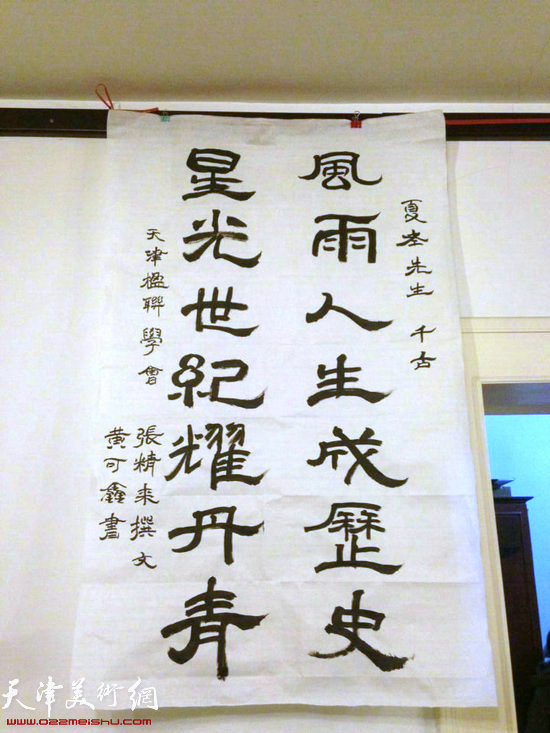 夏李先生 千古
風雨人生成歷史
星光世紀耀丹青
天津楹聯學會
張精來撰文
黄可鑫書
天津美術網
www.022meishu.com